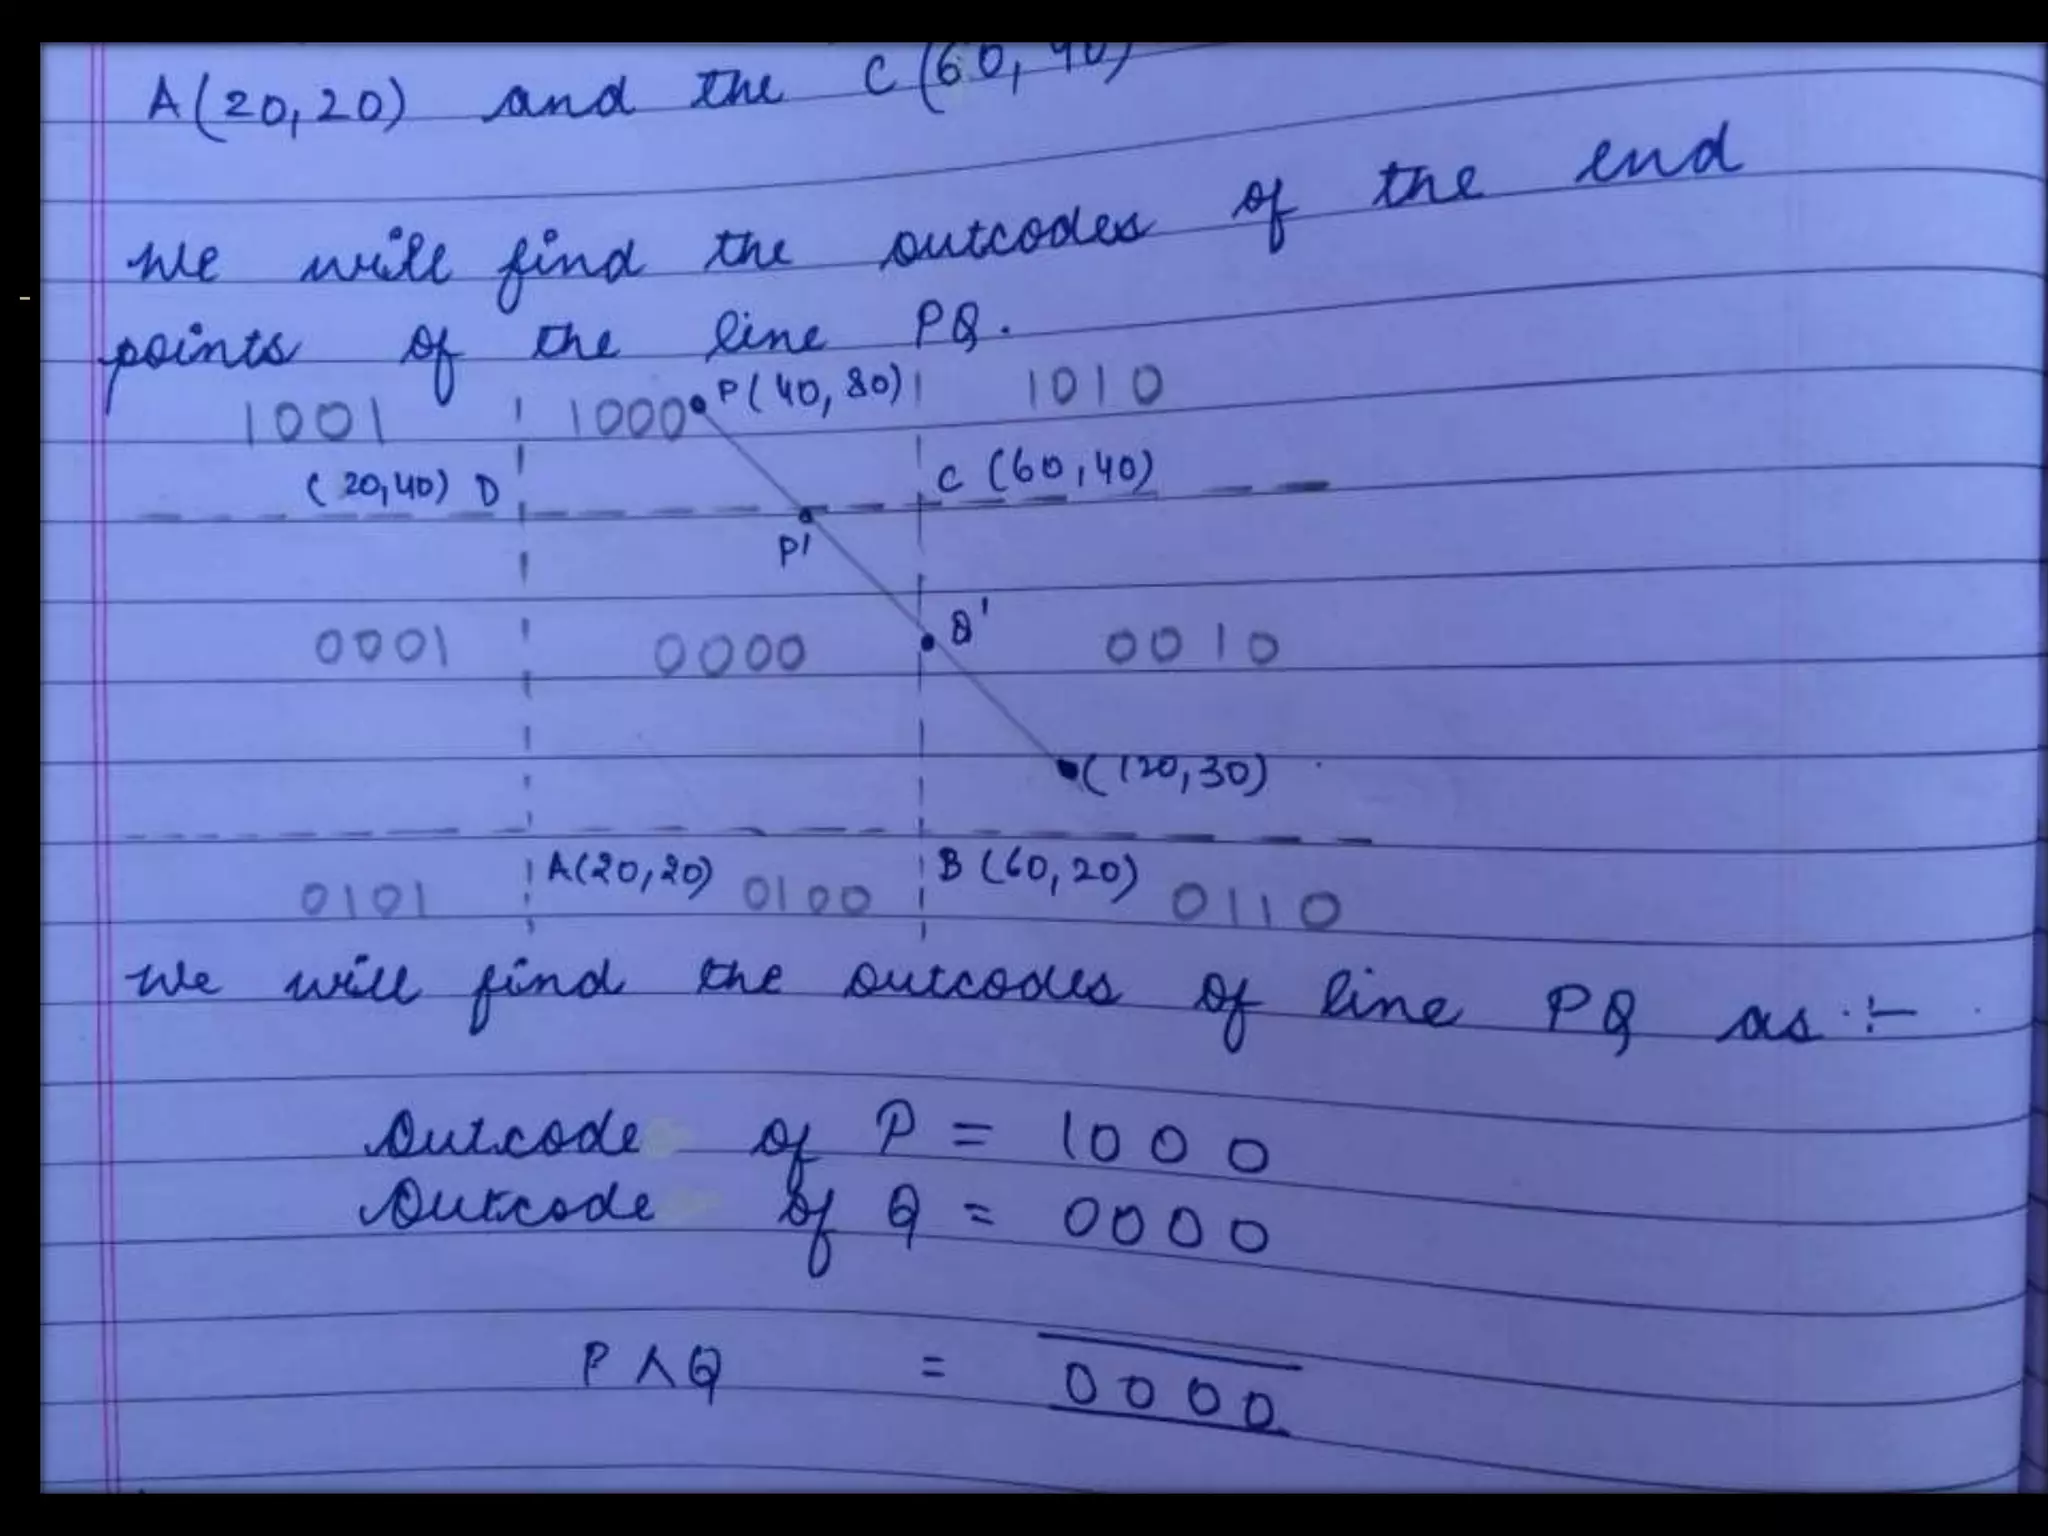 A(20,20) and the C(60,40)
We will find the outcodes of the end
points of the line PQ.
1001 1000 P(40,80) 1010
(20,40) D C (60,40)
P'
Q'
0001 0000 0010
(120,30)
A(20,20) B(60,20)
0101 0100 0110
We will find the outcodes of line PQ as :-
Outcode of P = 1000
Outcode of Q = 0000
P∧Q = 0000